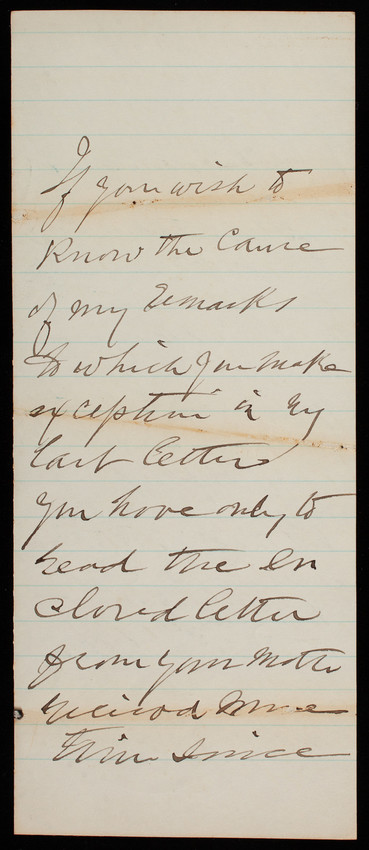 If you wish to
Know the Cause
of my remarks
to which you make
exception in my
last letter
you have only to
read the en
closed letter
from your Mother
recieved some
time since